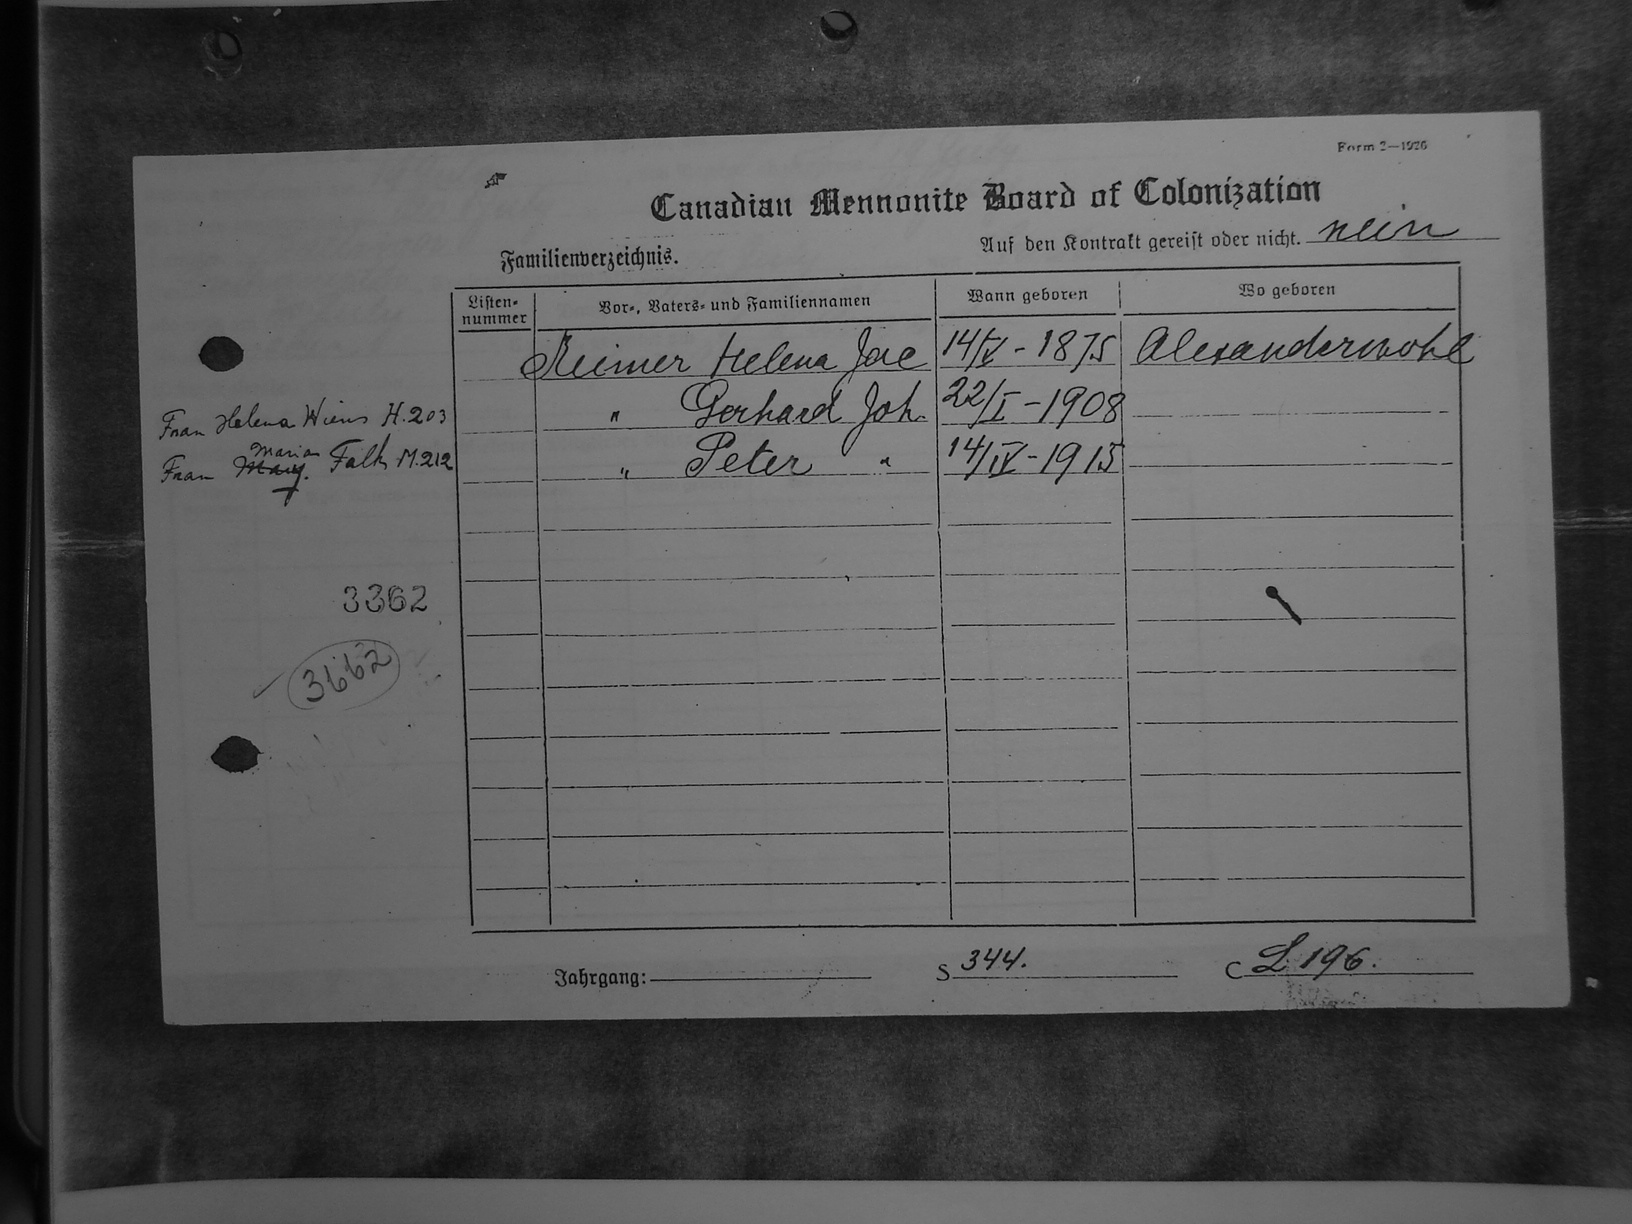 Form 2—1926
Canadian Mennonite Board of Colonization
Auf den Kontrakt gereist oder nicht. nein
Familienverzeichnis.
Listen-nummer Vor-, Vaters- und Familiennamen Wann geboren Wo geboren
Reimer Helena 14/V - 1875 Alexanderwohl
Frau Helena Wiens H.203 " Gerhard Joh. 22/I - 1908
Maria
Frau Mary. Falk M.212 " Peter " 14/IV - 1915
3362
3662
Jahrgang: S 344. C L 196.